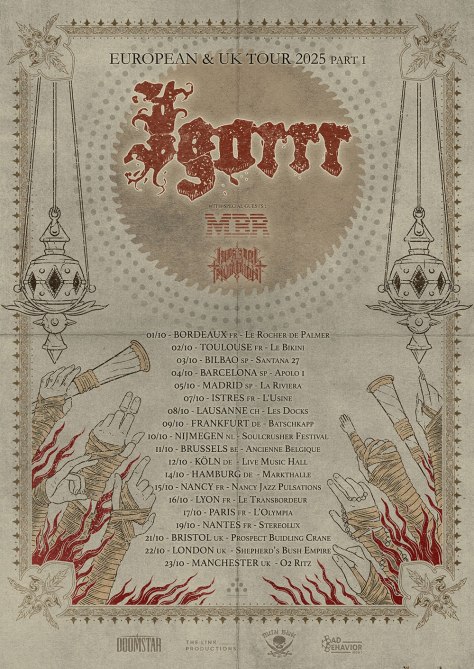 EUROPEAN & UK TOUR 2025 PART I
Igorrr
WITH SPECIAL GUESTS :
MBR
IMPERIAL TRIUMPHANT
01/10 - BORDEAUX FR - LE ROCHER DE PALMER
02/10 - TOULOUSE FR - LE BIKINI
03/10 - BILBAO SP - SANTANA 27
04/10 - BARCELONA SP - APOLO 1
05/10 - MADRID SP - LA RIVIERA
07/10 - ISTRES FR - L'USINE
08/10 - LAUSANNE CH - LES DOCKS
09/10 - FRANKFURT DE - BATSCHKAPP
10/10 - NIJMEGEN NL - SOULCRUSHER FESTIVAL
11/10 - BRUSSELS BE - ANCIENNE BELGIQUE
12/10 - KÖLN DE - LIVE MUSIC HALL
14/10 - HAMBURG DE - MARKTHALLE
15/10 - NANCY FR - NANCY JAZZ PULSATIONS
16/10 - LYON FR - LE TRANSBORDEUR
17/10 - PARIS FR - L'OLYMPIA
19/10 - NANTES FR - STEREOLUX
21/10 - BRISTOL UK - PROSPECT BUIDLING CRANE
22/10 - LONDON UK - SHEPHERD'S BUSH EMPIRE
23/10 - MANCHESTER UK - O2 RITZ
DOOMSTAR
THE LINK
PRODUCTIONS
METAL BLADE
BAD
BEHAVIOR